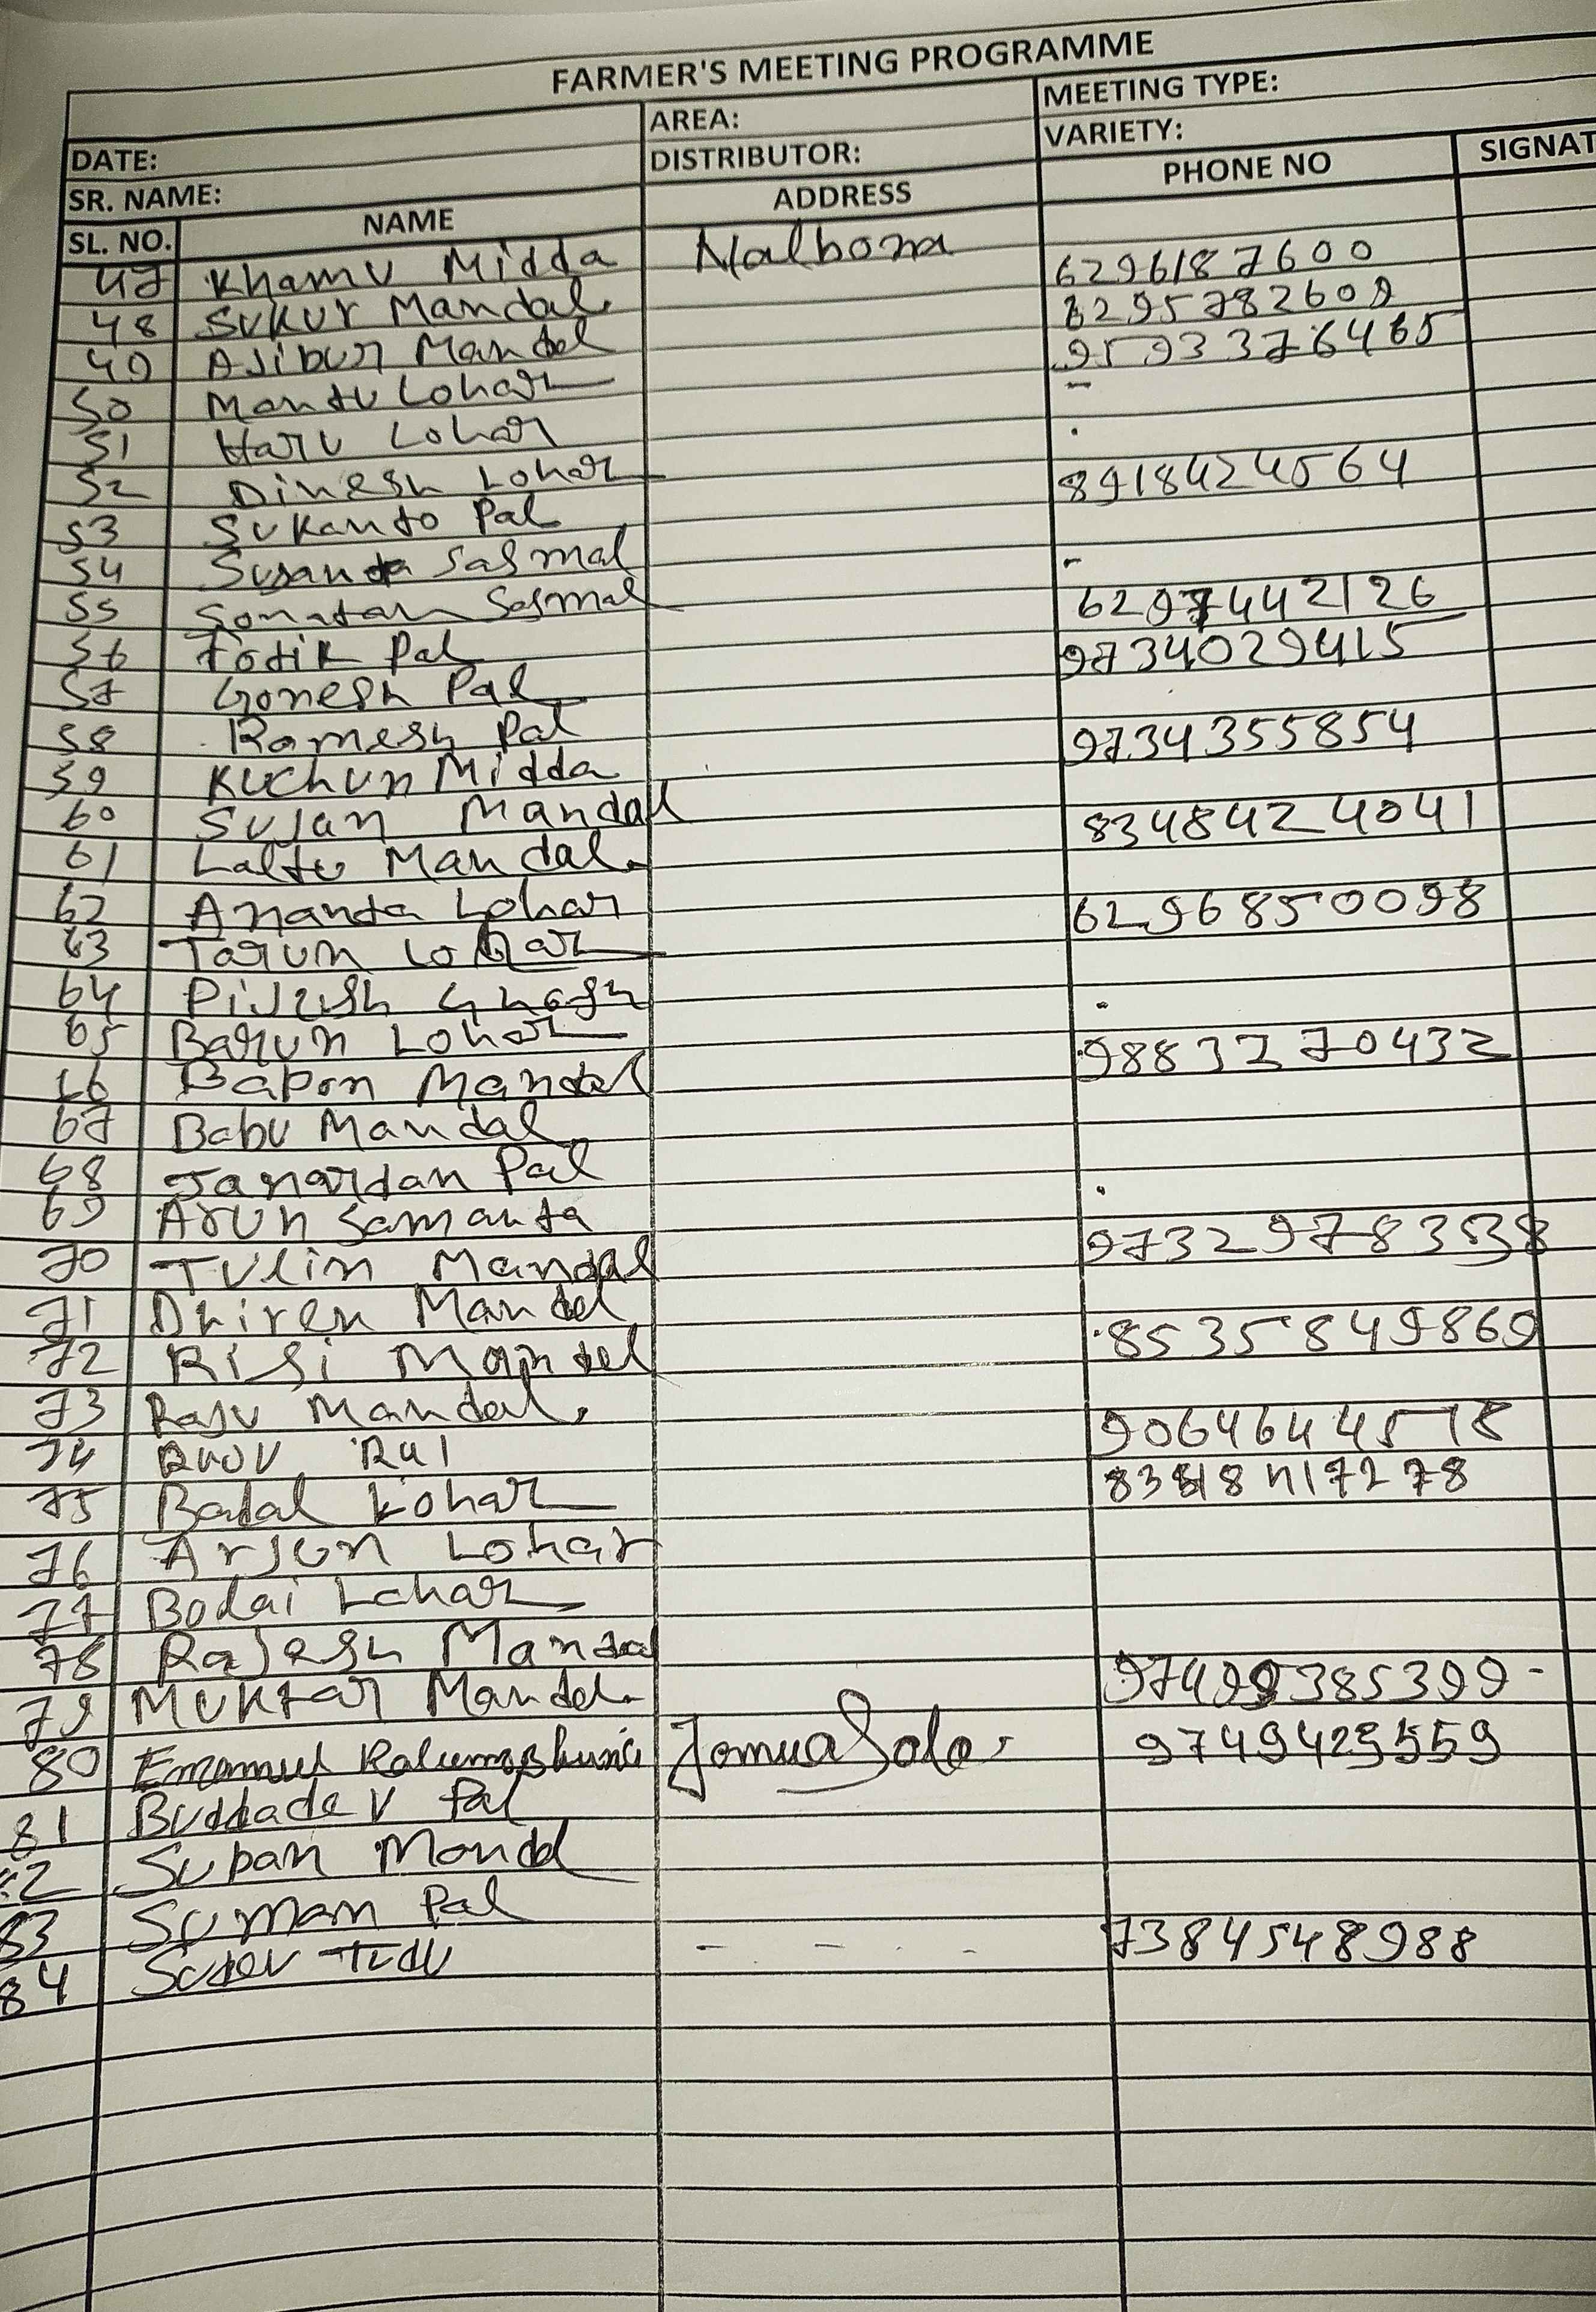 FARMER'S MEETING PROGRAMME
AREA: MEETING TYPE:
DATE: DISTRIBUTOR: VARIETY:
SR. NAME: ADDRESS PHONE NO SIGNAT
SL. NO. NAME
47 Khamu Midda Nalbona 6296187600
48 Sukur Mandal 6295782609
49 Ajibur Mandal
50 Mantu Lohar -
51 Haru Lohar .
52 Dinesh Lohar 8918424564
53 Sukanto Pal
54 Susanta Sasmal -
55 Sonatan Sasmal 6297442126
56 Fotik Pal 9734029415
57 Gonesh Pal
58 Ramesh Pal 9734355854
59 Kuchun Midda
60 Sujan Mandal 8348424041
61 Laltu Mandal
62 Ananta Lohar 6296850098
63 Tarun Lohar
64 Pijush Ghosh .
65 Barun Lohar 9883270432
66 Bapon Mandal
67 Babu Mandal
68 Janardan Pal .
69 Arun Samanta
70 Tulin Mandal
71 Dhiren Mandal
72 Risi Mandal 8535849869
73 Raju Mandal
74 9064644518
75 Badal Lohar
76 Arjun Lohar
77 Bodai Lohar
78 Rajesh Mandal
79 Muktar Mandal
80 9749429559
81 Buddadev Pal
82 Supan Mondal
83 Suman Pal
84 - - - - 7384548988